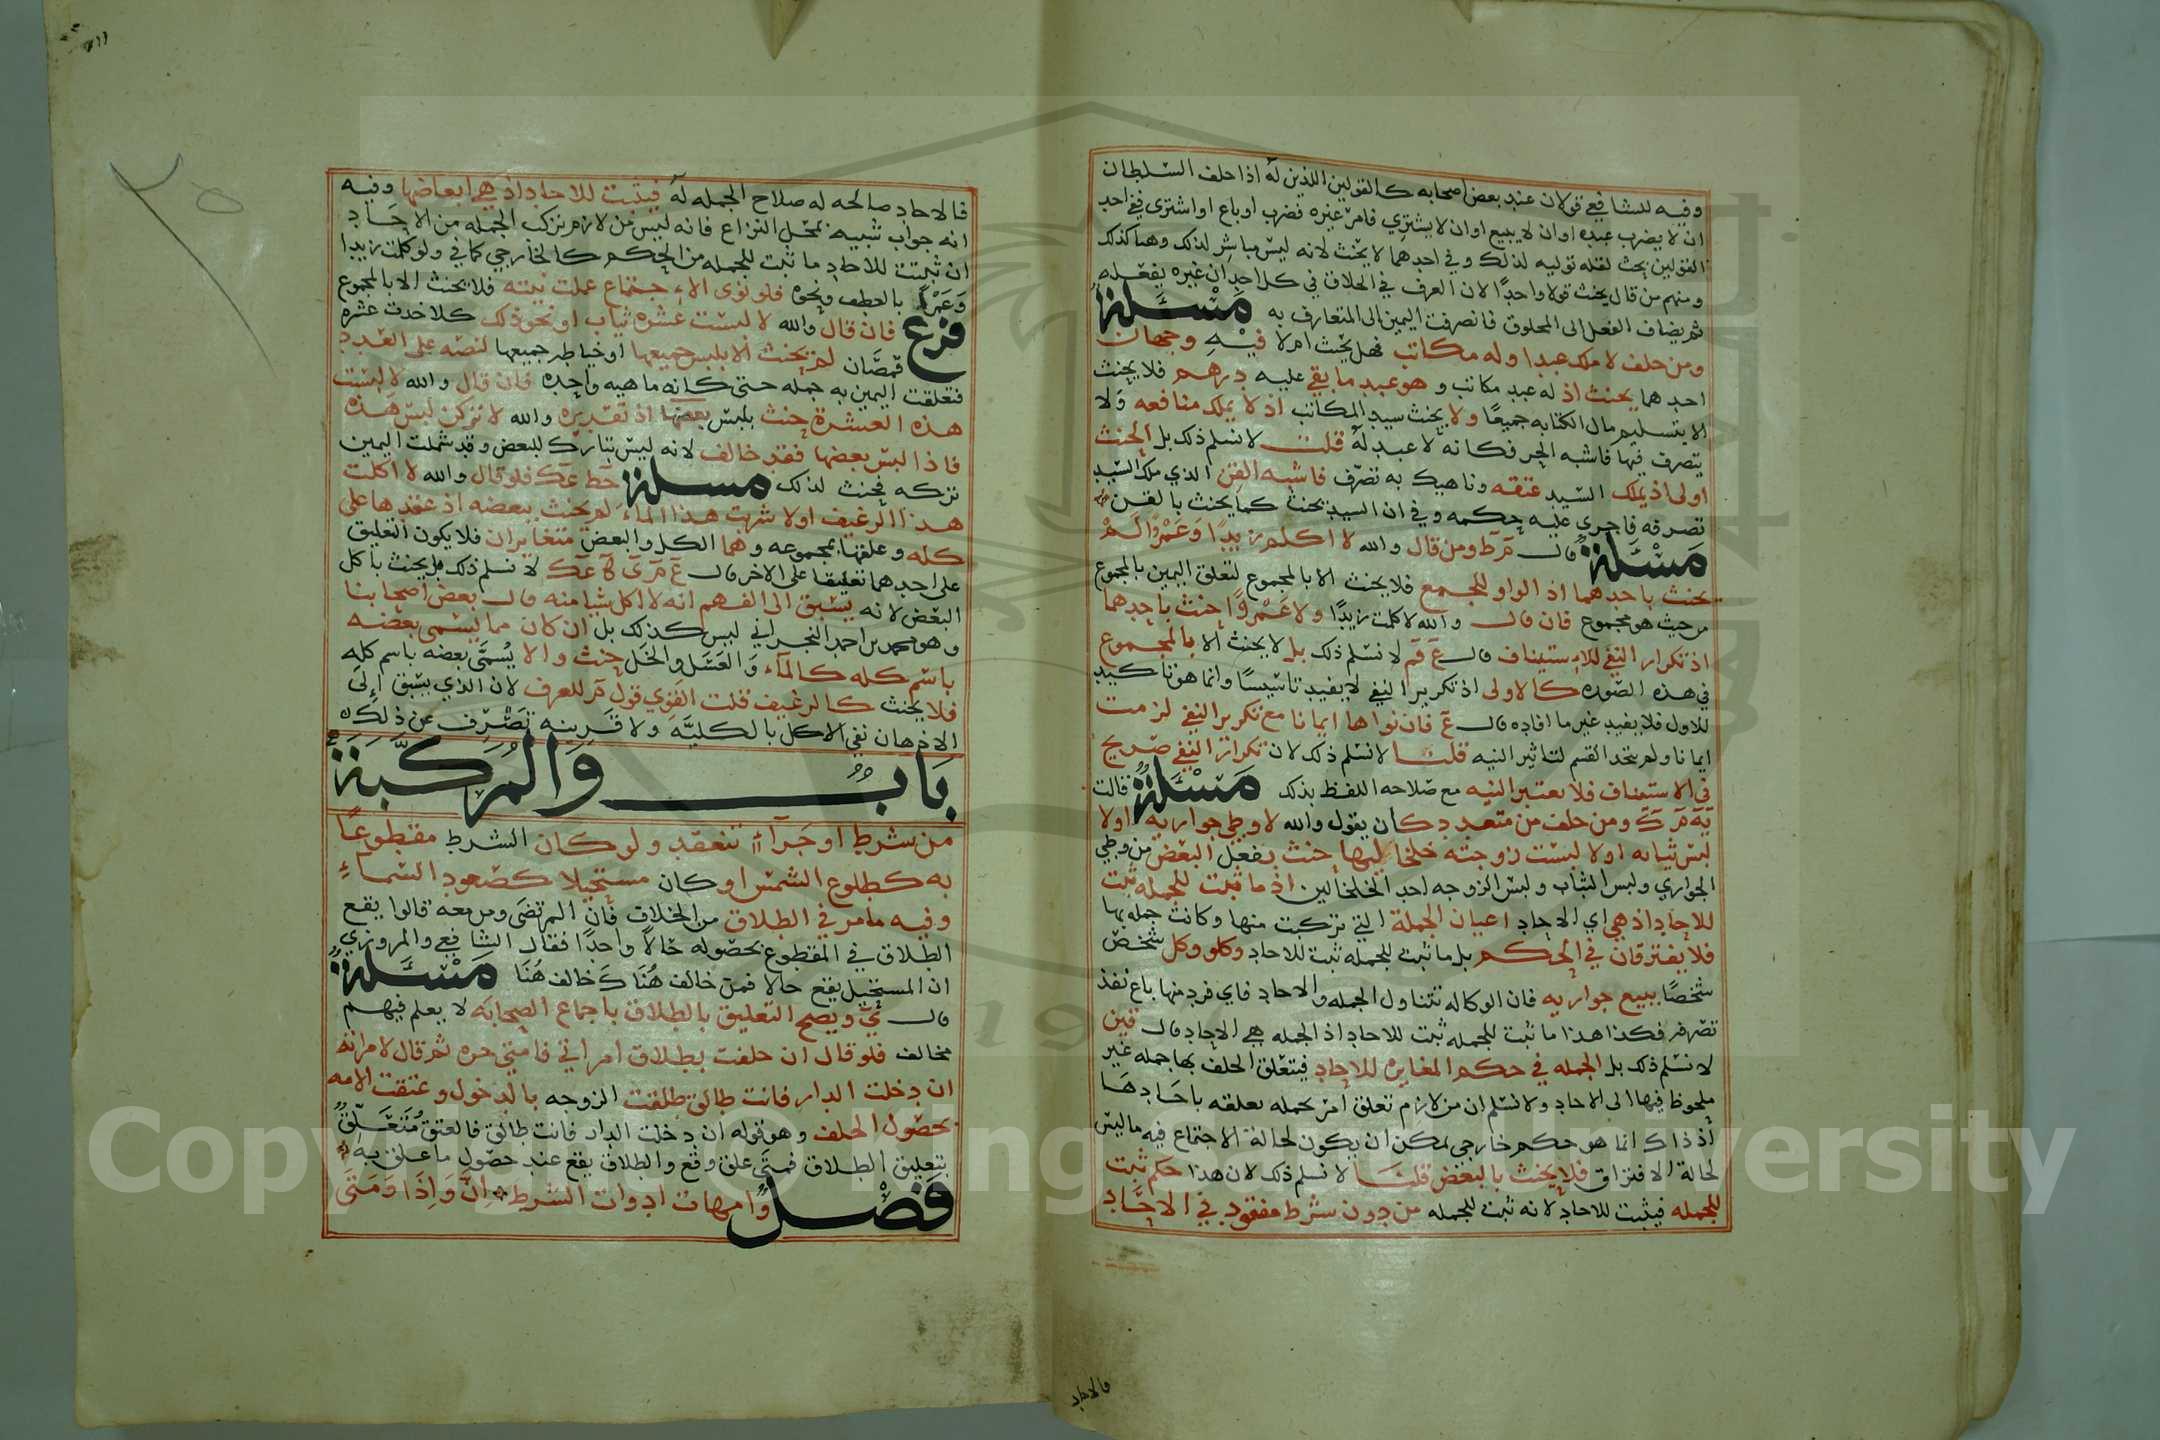 وفيه للشافعي قولان عند بعض اصحابه كالقولين اللذين له اذا حلف السلطان
ان لا يضرب عبده او ان لا يبيع او ان لا يشتري فامر غيره فضرب او باع او اشترى ففي احد
القولين يحنث لعله توليه لذلك وفي احدهما لا يحنث لانه ليس مباشر لذلك وهنا كذلك
ومنهم من قال يحنث قولا واحدا لان العرف في الحلاق في كل احد ان غيره يفعله
ثم يضاف الفعل الى المحلوق فانصرفت اليمين الى المتعارف به مسئلة
ومن حلف لا ملك عبدا وله مكاتب فهل يحنث ام لا فيه وجهان
احدهما يحنث اذ له عبد مكاتب وهو عبد ما بقي عليه درهم فلا يحنث
الا بتسليم مال الكتابه جميعا ولا يحنث سيد المكاتب اذ لا يملك منافعه ولا
يتصرف فيها فاشبه الحر فكانه لا عبد له قلت لا نسلم ذلك بل الحنث
اولى اذ يملك السيد عتقه وناهيك به تصرف فاشبه القن الذي ملك السيد
تصرفه فاجري عليه حكمه وفي ان السيد يحنث كما يحنث بالقن
مسئلة قال م ط ومن قال والله لا اكلم زيدا وعمروا لم
يحنث باحدهما اذ الواو للجمع فلا يحنث الا بالمجموع لتعلق اليمين بالمجموع
من حيث هو مجموع فان قال والله لا كلمت زيدا ولا عمروا حنث باحدهما
اذ تكرار النفي للاستيناف قال ع قم لا نسلم ذلك بل لا يحنث الا بالمجموع
في هذه الصوره كالاولى اذ تكرير النفي لا يفيد تاسيسا وانما هو تاكيد
للاول فلا يفيد غير ما افاده قال ع فان نواها ايمانا مع تكرير النفي لزمت
ايمانا ولم يتحد القسم لتاثير النيه قلنا لا نسلم ذلك لان تكرار النفي صريح
في الاستيناف فلا يعتبر النيه مع صلاحه اللفظ بذلك مسئلة قالت
ومن حلف من متعدد كان يقول والله لا وطي جواريه اولا
لبس ثيابه اولا لبست زوجته خلخاليها حنث بفعل البعض من وطي
الجواري ولبس الثياب ولبس الزوجه احد الخلخالين اذ ما ثبت للجمله ثبت
للاحاد اذ هي اي الاحاد اعيان الجملة التي تركبت منها وكانت جمله بها
فلا يفترقان في الحكم بل ما ثبت للجمله ثبت للاحاد وكلو وكل شخص
شخصا ببيع جواريه فان الوكاله تتناول الجمله والاحاد فاي فرد منها باع نفذ
تصرفه فكذا هذا ما ثبت للجمله ثبت للاحاد اذ الجمله هي الاحاد قال قين
لا نسلم ذلك بل الجمله في حكم المغايره للاحاد فيتعلق الحلف بها جمله غير
ملحوظ فيها الى الاحاد ولا نسلم ان من لازم تعلق امر بجمله تعلقه باحادها
اذ ذاك انما هو حكم خارجي يمكن ان يكون لحالة الاجتماع فيه ما ليس
لحالة الافتراق فلا يحنث بالبعض قلنا لا نسلم ذلك لان هذا حكم ثبت
للجمله فيثبت للاحاد لانه ثبت للجمله من دون شرط مفقود في الاحاد
فالاحاد
فالاحاد صالحه له صلاح الجمله له فيثبت للاحاد اذ هي ابعاضها وفيه
انه جواب شبيه بمحل النزاع فانه ليس من لازم تركب الجمله من الاحاد
ان ثبت للاحاد ما ثبت للجمله من الحكم كالخارجي كما في ولو كلمت زيدا
وعمروا بالعطف ونحوه فلو نوى الاجتماع عملت نيته فلا يحنث الا بالمجموع
فرع فان قال والله لا لبست عشره ثياب او نحو ذلك كلاخدت عشره
قمصان لم يحنث الا بلبس جميعها او خياطه جميعها لنصه على العدد
فتعلقت اليمين به جمله حتى كانه ماهيه واحده فان قال والله لا لبست
هذه العشرة حنث بلبس بعضها اذ تقديره والله لا تركن لبس هذه
فاذا لبس بعضها فقد خالف لانه ليس بتارك للبعض وقد شملت اليمين
تركه فحنث لذلك مسئلة فلو قال والله لا اكلت
هذا الرغيف اولا شربت هذا الماء لم يحنث ببعضه اذ عقدها على
كله وعلقها بمجموعه وهما الكل والبعض متغايران فلا يكون التعليق
على احدهما تعليقا على الاخر قال لا نسلم ذلك بل يحنث باكل
البعض لانه يسبق الى الفهم انه لا اكل شيا منه قال بعض اصحابنا
وهو محمد بن احمد النجراني ليس كذلك بل ان كان مما يسمى بعضه
باسم كله كالماء والعسل والخل حنث والا يسمى بعضه باسم كله
فلا يحنث كالرغيف قلت القوي قول م للعرف لان الذي يسبق الى
الاذهان نفي الاكل بالكليه ولا قرينه تصرف عن ذلك
باب والمركبة
من شرط او جزآء تنعقد ولو كان الشرط مقطوعا
به كطلوع الشمس او كان مستحيلا كصعود السماء
وفيه ما مر في الطلاق من الخلاف فان المرتضى ومن معه قالوا يقع
الطلاق في المقطوع بحصوله حالا واحدا فقال الشافعي والمروزي
ان المستحيل يقع حالا فمن خالف هنا ك خالف هنا مسئلة
قال ي ويصح التعليق بالطلاق باجماع الصحابه لا يعلم فيهم
مخالف فلو قال ان حلفت بطلاق امراتي فامتي حره ثم قال لامراته
ان دخلت الدار فانت طالق طلقت الزوجه بالدخول وعتقت الامه
بحصول الحلف وهو قوله ان دخلت الدار فانت طالق فالعتق متعلق
بتعليق الطلاق فمتى علق وقع والطلاق يقع عند حصول ما علق به
فصل وامهات ادوات الشرط ان واذا ومتى
Copyright © King Saud University